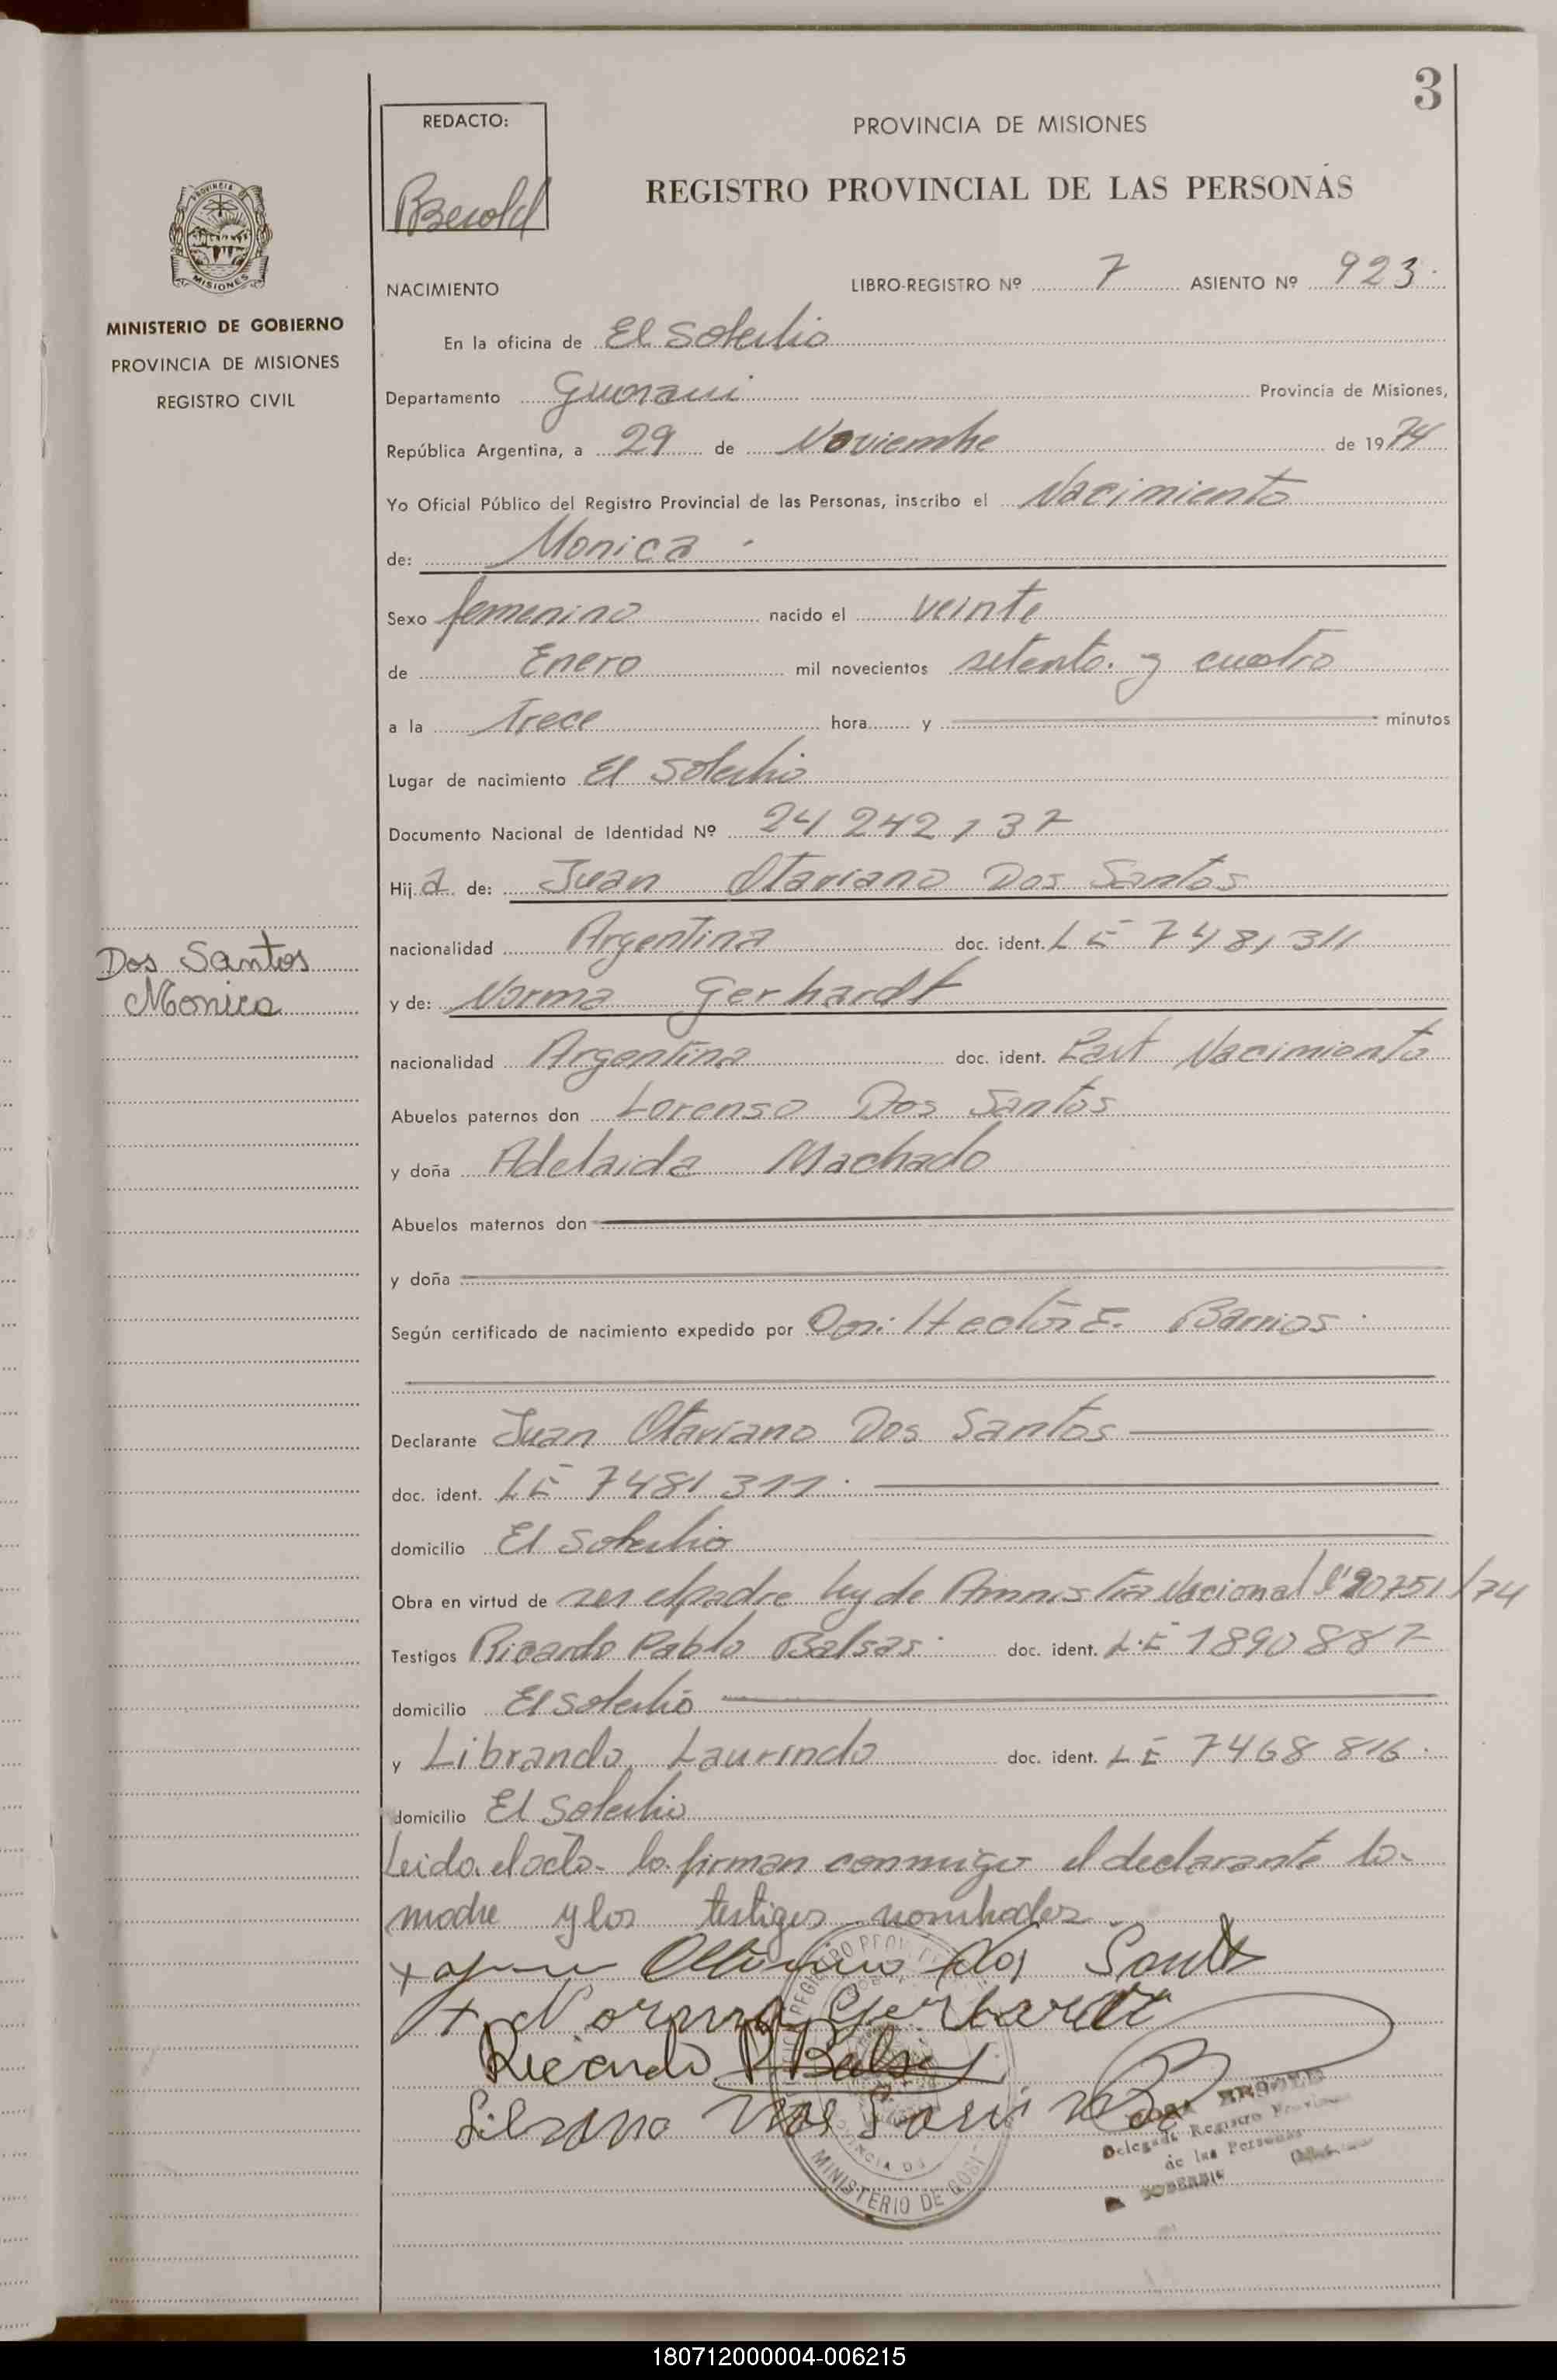 3
REDACTO:
PROVINCIA DE MISIONES
REGISTRO PROVINCIAL DE LAS PERSONAS
PROVINCIA
MISIONES
NACIMIENTO LIBRO-REGISTRO Nº 7 ASIENTO Nº 923
MINISTERIO DE GOBIERNO
PROVINCIA DE MISIONES
REGISTRO CIVIL
En la oficina de El Soberbio
Departamento Guarani Provincia de Misiones,
República Argentina, a 29 de Noviembre de 1974
Yo Oficial Público del Registro Provincial de las Personas, inscribo el Nacimiento
de: Monica
Sexo femenino nacido el veinte
de Enero mil novecientos setenta y cuatro
a la Trece hora y minutos
Lugar de nacimiento El Soberbio
Documento Nacional de Identidad Nº 24 242 137
Hij a de: Juan Otaviano Dos Santos
nacionalidad Argentina doc. ident. L E 7481311
Dos Santos
Monica
y de: Norma Gerhardt
nacionalidad Argentina doc. ident. Part Nacimiento
Abuelos paternos don Lorenso Dos Santos
y doña Adelaida Machado
Abuelos maternos don
y doña
Según certificado de nacimiento expedido por Hector E. Barrios
Declarante Juan Otaviano Dos Santos
doc. ident. L E 7481311
domicilio El Soberbio
Obra en virtud de ser el padre ley de Amnistia Nacional Nº 20751/74
Testigos Ricardo Pablo Balsas doc. ident. L.E 1890887
domicilio El Soberbio
y Librando Laurindo doc. ident. L E 7468 816
domicilio El Soberbio
Leida el acta la firman conmigo el declarante la
madre y los testigos nombrados
+ dos Santos
+ Norma Gerhardt
Ricardo P Balsas
MINISTERIO DE GOBI
Delegada Registro Provincial
de las Personas
SOBERBIO
180712000004-006215